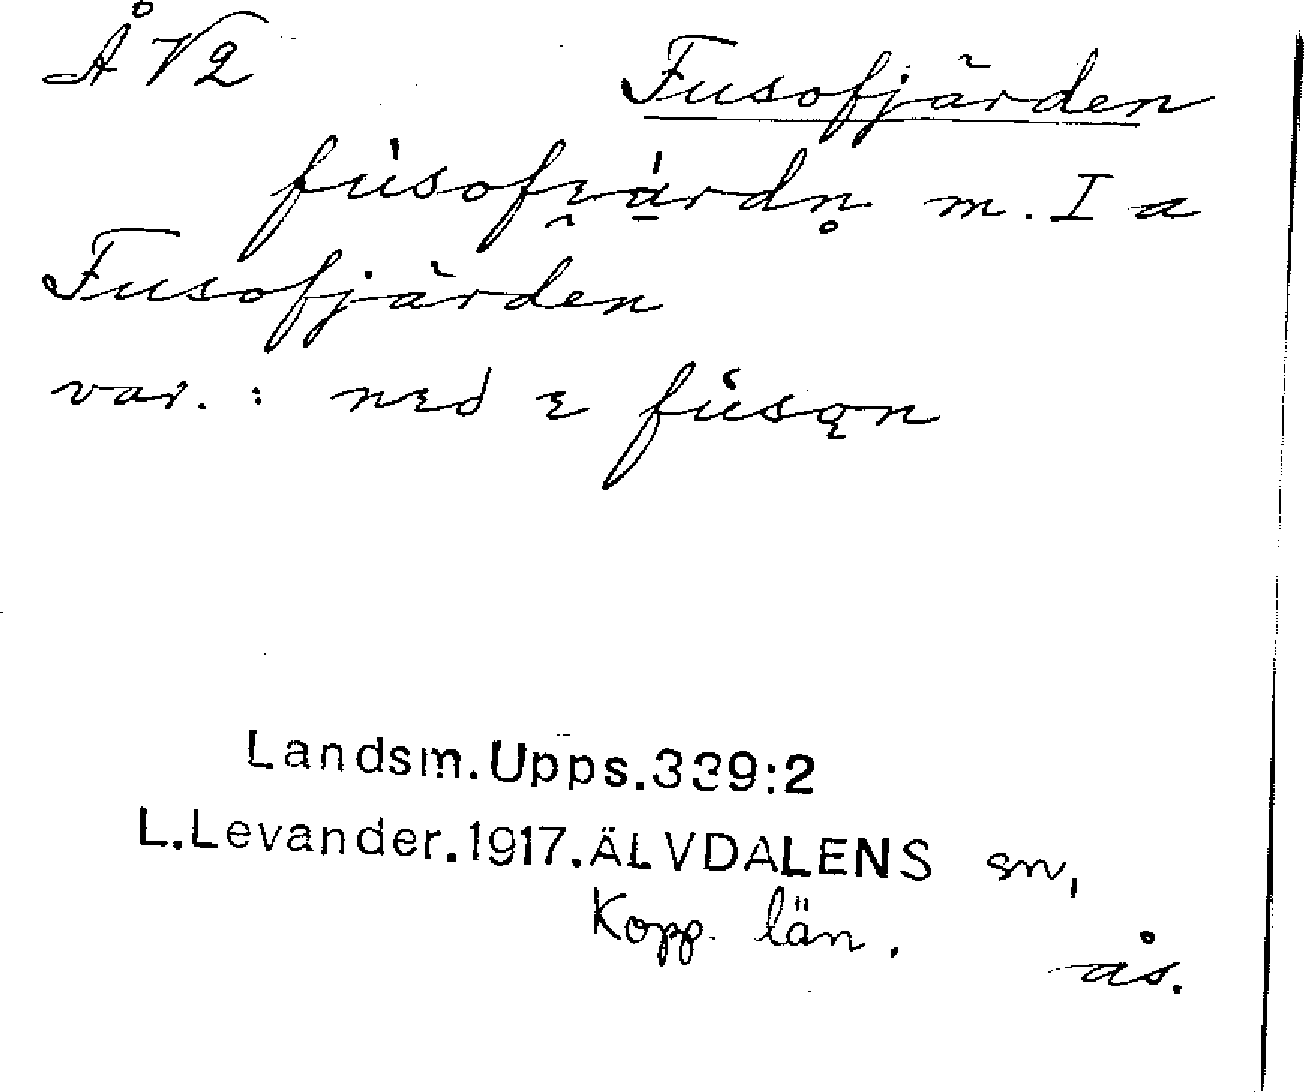 Å V2
Fusofjärden
fusofɪärdn̥ m. I a
Fusofjärden
var. : nɛd ɛ fusǫn
Landsm.Upps.339:2
L.Levander.1917.ÄLVDALENS sn,
Kopp. län.
ås.